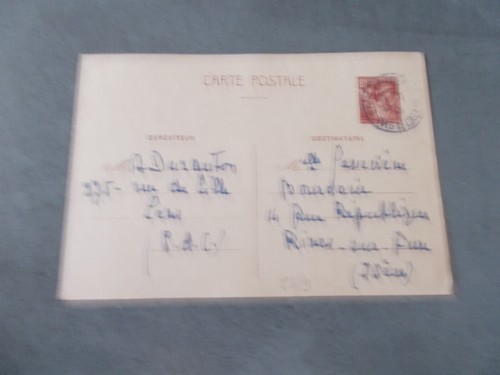 CARTE POSTALE
EXPÉDITEUR
A Duranton
225 - rue de Lille
Lens
(P.d.C.)
DESTINATAIRE
Mlle Geneviève
14 Rue République
Rives-sur-Fure
(Isère)